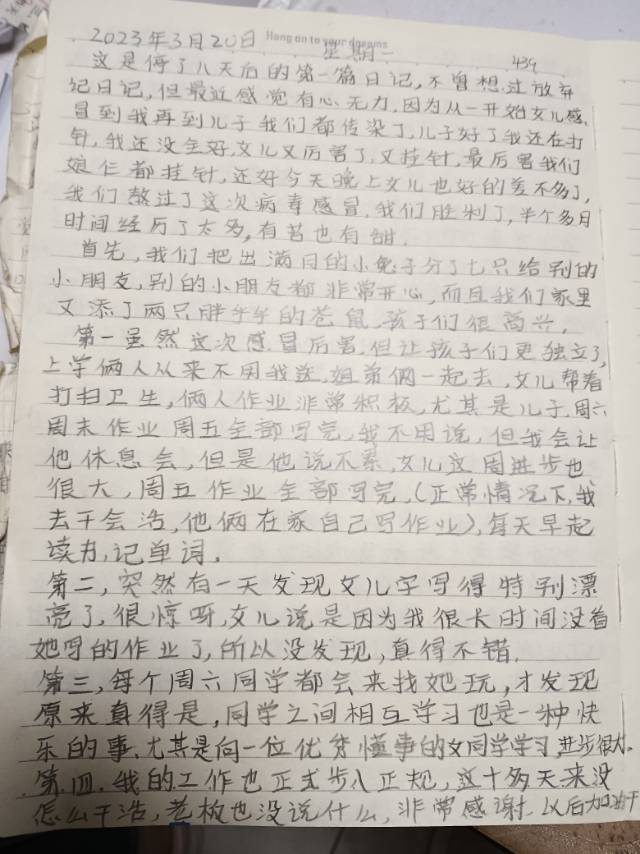 Hang on to your dreams
2023年3月20日 星期一 439
这是停了八天后的第一篇日记,不曾想过放弃
记日记,但最近感觉有心无力,因为从一开始女儿感
冒到我再到儿子我们都传染了,儿子好了我还在打
针,我还没全好,女儿又厉害了,又挂针,最后害我们
娘仨都挂针,还好今天晚上女儿也好的差不多了,
我们熬过了这次病毒感冒,我们胜利了,半个多月
时间经历了太多,有苦也有甜.
首先,我们把出满月的小兔子分了七只给别的
小朋友,别的小朋友都非常开心,而且我们家里
又添了两只胖乎乎的苍鼠,孩子们很高兴,
第一虽然这次感冒厉害,但让孩子们更独立了,
上学俩人从来不用我送,姐弟俩一起去,女儿帮着
打扫卫生,俩人作业非常积极,尤其是儿子,周六
周末作业周五全部写完,我不用说,但我会让
他休息会,但是他说不累,女儿这周进步也
很大,周五作业全部写完,(正常情况下,我
去干会活,他俩在家自己写作业),每天早起
读书,记单词.
第二,突然有一天发现女儿字写得特别漂
亮了,很惊呀,女儿说是因为我很长时间没看
她写的作业了,所以没发现,真得不错.
第三,每个周六同学都会来找她玩,才发现
原来真得是,同学之间相互学习也是一种快
乐的事.尤其是向一位优秀懂事的女同学学习,进步很大.
第四,我的工作也正式步入正规,这十多天来没
怎么干活,老板也没说什么,非常感谢.以后加油干